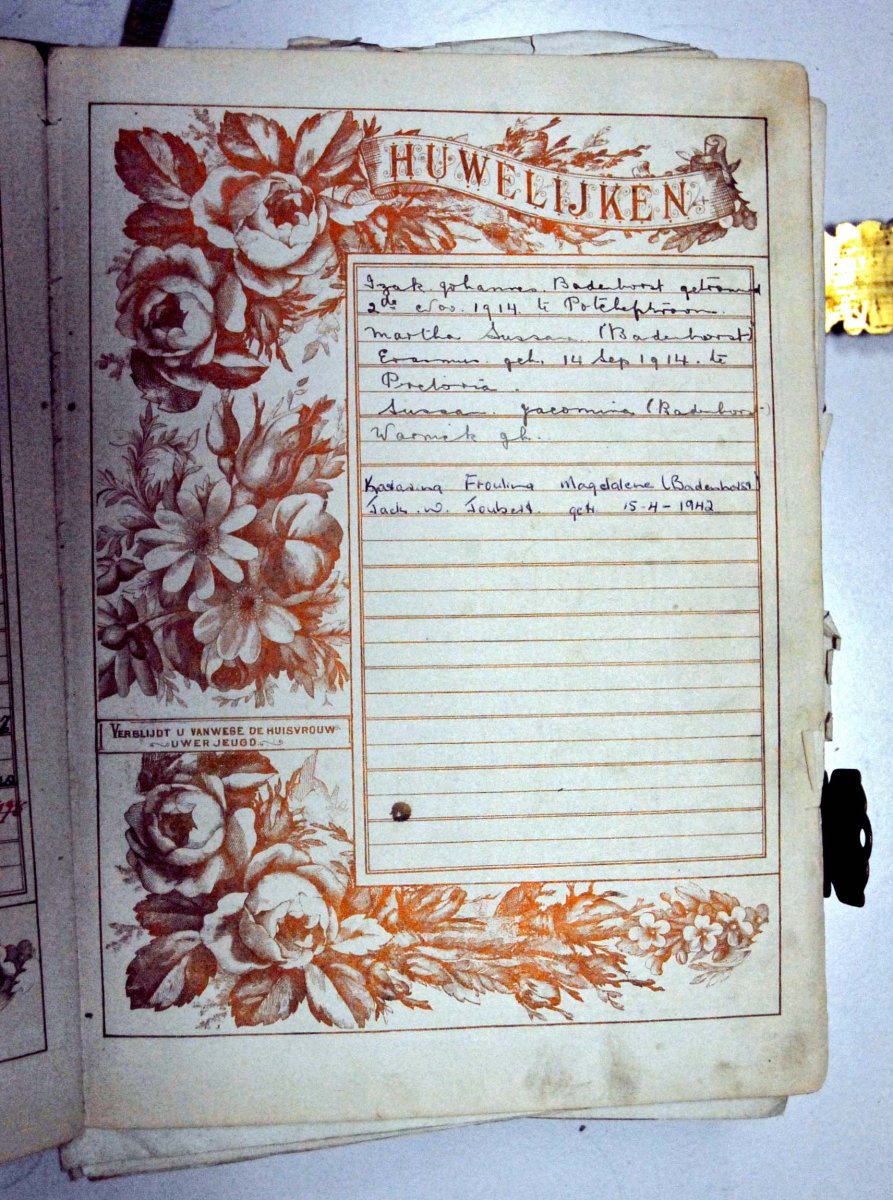 HUWELIJKEN
Izak Johannes Badenhorst getrouwd
2de Nov. 1914 te Potchefstroom.
Martha Sussan (Badenhorst)
Erasmus geh. 14 Sep 1914. te
Pretoria.
Sussan Jacomina (Badenhorst)
Warnick gh.
Katarina Froulina Magdalene (Badenhorst)
Jack. W. Joubert. getr 15-4-1942
VERBLIJDT U VANWEGE DE HUISVROUW
UWER JEUGD.
2